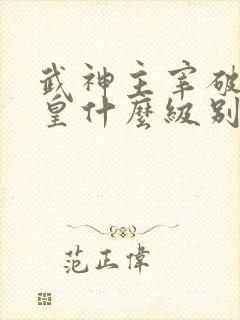 武神主宰破
皇什麼級別
范正偉